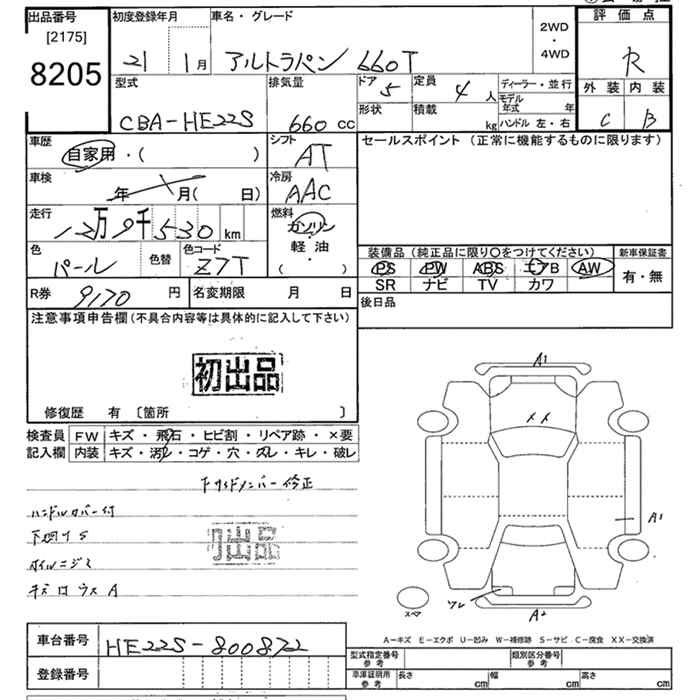 出品番号
[2175]
8205
初度登録年月
21 1月
車名・グレード
アルトラパン 660T
2WD
・
4WD
評価点
R
外装 内装
C B
型式
CBA-HE22S
排気量
660 cc
ドア 5
定員 4 人
形状
積載 kg
ディーラー・並行
モデル年式 年
ハンドル 左・右
車歴
自家用・( )
シフト
AT
セールスポイント (正常に機能するものに限ります)
車検
年 月( 日)
冷房
AAC
走行
12万9千530 km
燃料
ガソリン
・
軽油
( )
色
パール
色替
色コード
Z7T
装備品 (純正品に限り○をつけてください)
PS PW ABS エアB AW
SR ナビ TV カワ
新車保証書
有・無
R券 9170 円
名変期限 月 日
後日品
注意事項申告欄(不具合内容等は具体的に記入して下さい)
初出品
修復歴 有 〔箇所 〕
検査員記入欄
FW キズ・飛石・ヒビ割・リペア跡・×要
内装 キズ・汚れ・コゲ・穴・スレ・キレ・破レ
下サイドメンバー修正
ハンドルカバー付
下廻りS
オイルニジミ
初出品
A1
A1
A2
ワレ
スペア
A−キズ E−エクボ U−凹み W−補修跡 S−サビ C−腐食 XX−交換済
車台番号
HE22S-800872
登録番号
型式指定番号
参考
類別区分番号
参考
車庫証明用
参考
長さ cm
幅 cm
高さ cm